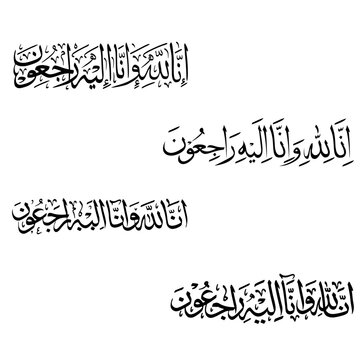 إنا لله وإنا إليه راجعون
إنا لله وإنا إليه راجعون
انا لله وانا اليه راجعون
انا لله وانا اليه راجعون